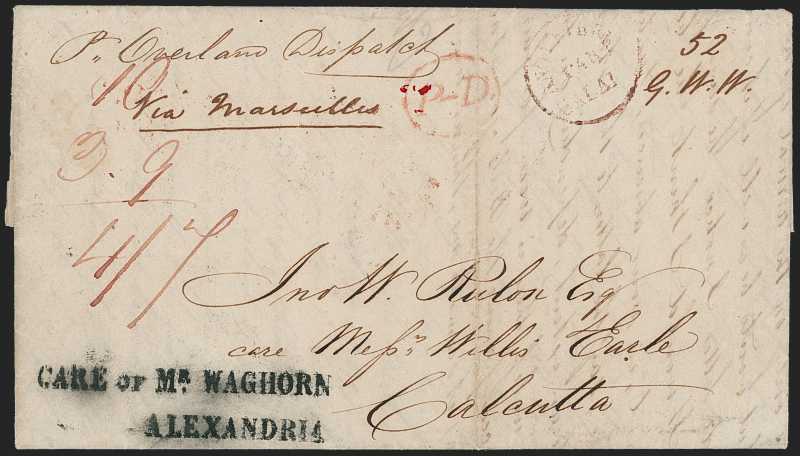 Pr. Overland Dispatch
Via Marseilles
P-D
52
G. W. W.
10
3. 9
4/7
Jno W. Rulon Esq
care Messrs Willis Earle
Calcutta
CARE OF MR. WAGHORN
ALEXANDRIA